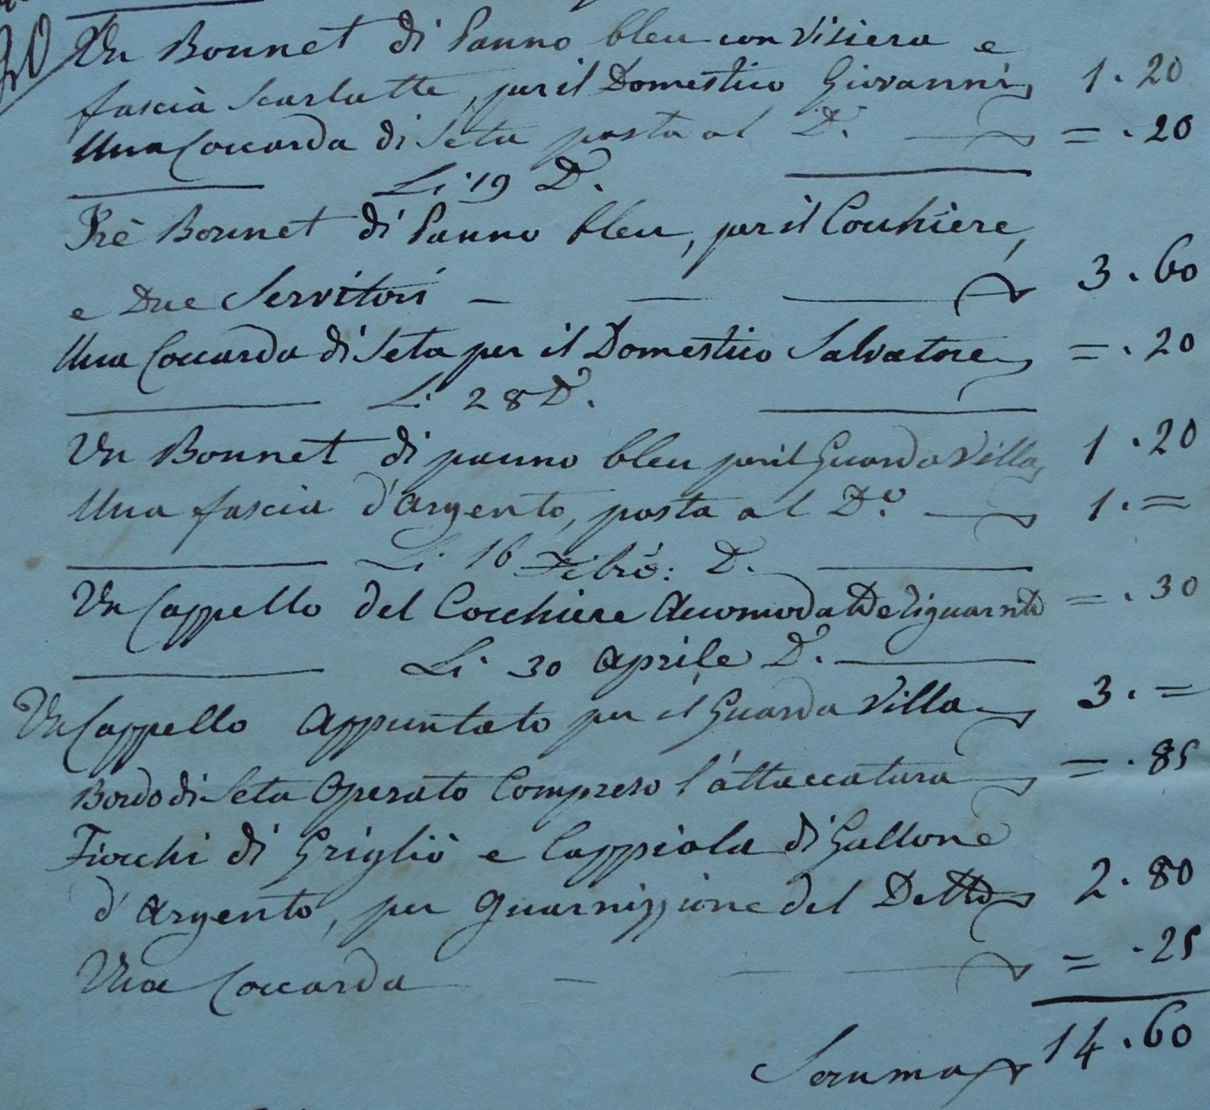 Un Bonnet di Panno bleu con Visiera e
fascia Scarlatta, per il Domestico Giovanni 1.20
Una Coccarda di Seta posta al D.° = .20
Li 19 D.°
Trè Bonnet di Panno bleu, per il Cochiere,
e Due Servitori 3.60
Una Coccarda di Seta per il Domestico Salvatore = .20
Li 28 D.°
Un Bonnet di panno bleu per il Guarda Villa 1.20
Una fascia d'Argento, posta al D.° 1.=
Li 16 Febrō: D.
Un Cappello del Cocchiere Acomodato e riguarnito = .30
Li 30 Aprile D.°
Un Cappello Appuntato per il Guarda Villa 3.=
Bordo di Seta Operato Compreso l'attaccatura = .85
Fiocchi di Grigliò e Cappiola di Gallone
d'Argento, per guarnizzione del Detto 2.80
Una Coccarda = .25
Somma 14.60